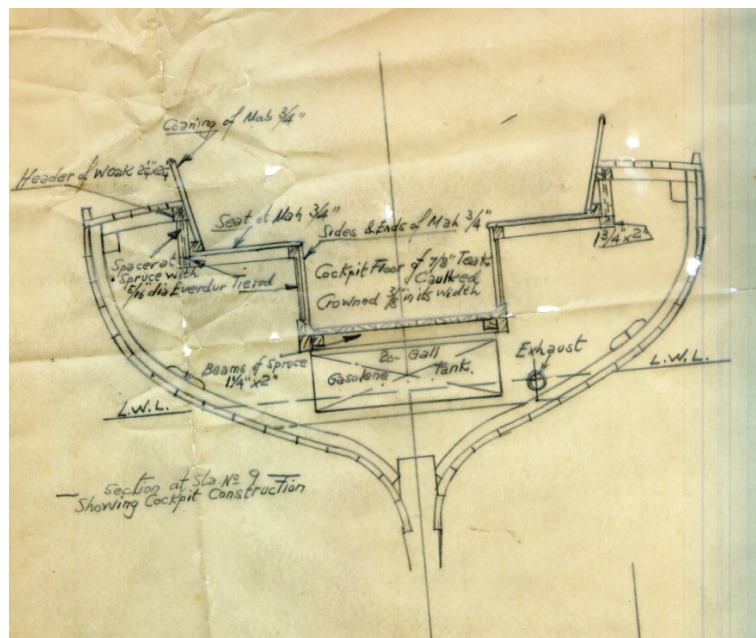 Coaming of Mah 3/4"
Header of W oak
Seat of Mah 3/4"
Sides & Ends of Mah 3/4"
1 3/4" x 2"
Spacer at
Spruce with
5/16" dia Everdur Tierod
Cockpit Floor of 7/8" Teak
Caulked
Crownd 3/8" in its width
Beams of Spruce
1 1/4" x 2"
20- Gall
Gasolene Tank.
Exhaust
L.W.L.
L.W.L.
Section at Sta. No 9
Showing Cockpit Construction